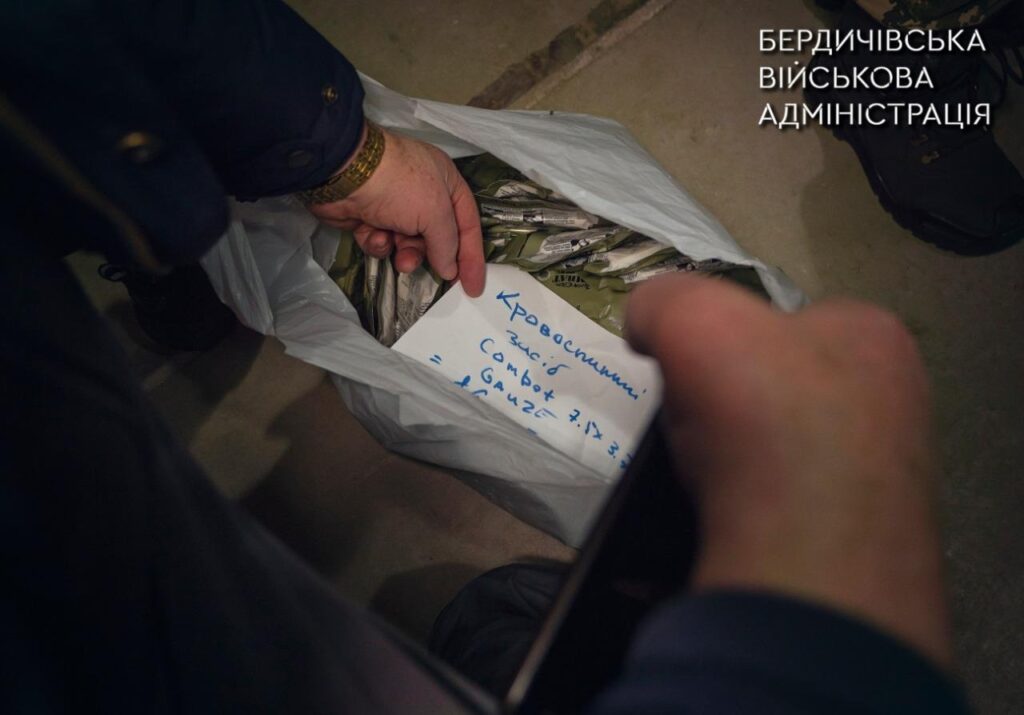 БЕРДИЧІВСЬКА
ВІЙСЬКОВА
АДМІНІСТРАЦІЯ
Кровоспинний
засіб
Combat
GAUZE 7.5x 3.7